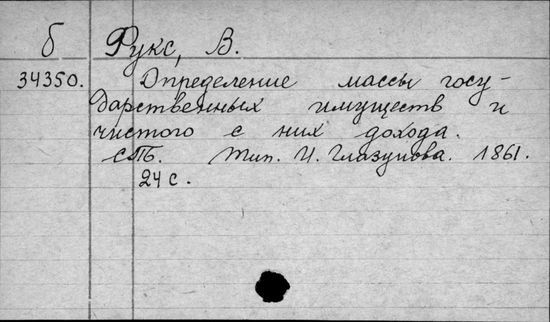 б Фукс, В.
34350. Определение массы госу-
дарственных имуществ и
чистого с них дохода.
СПБ. Тип. И. Глазунова. 1861.
24 с.